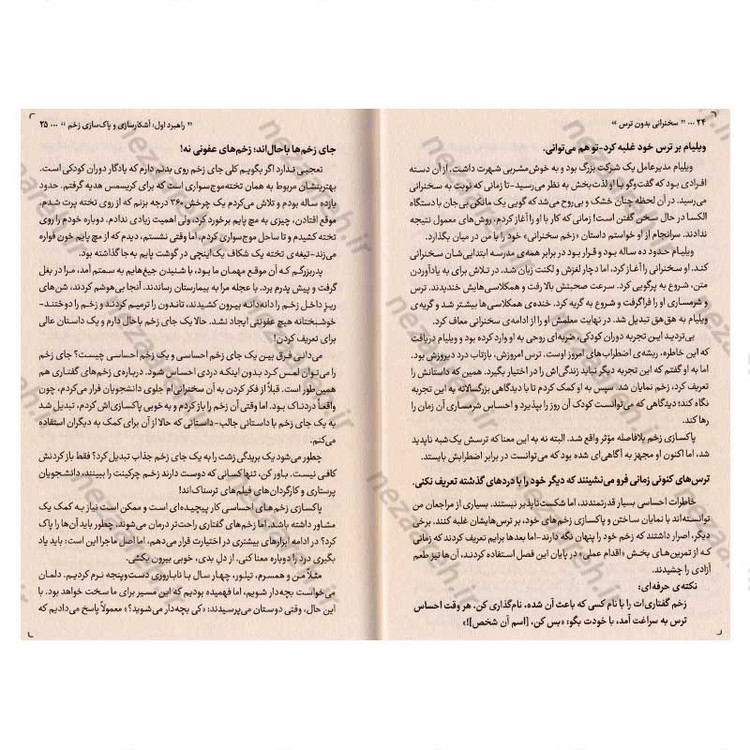 ۲۴ ... " سخنرانی بدون ترس "
ویلیام بر ترس خود غلبه کرد-تو هم می‌توانی.
ویلیام مدیرعامل یک شرکت بزرگ بود و به خوش‌مشربی شهرت داشت. از آن دسته
افرادی بود که گفت‌وگو با او لذت‌بخش به نظر می‌رسید-تا زمانی که نوبت به سخنرانی
می‌رسید. در آن لحظه چنان خشک و بی‌روح می‌شد که گویی یک مانکن بی‌جان با دستگاه
الکسا در حال سخن گفتن است! زمانی که کار با او را آغاز کردم، روش‌های معمول نتیجه
ندادند. سرانجام از او خواستم داستان «زخم سخنرانی» خود را با من در میان بگذارد.
ویلیام حدود ده ساله بود و قرار بود در برابر همه‌ی مدرسه ابتدایی‌شان سخنرانی
کند. او سخنرانی را آغاز کرد، اما دچار لغزش و لکنت زبان شد. در تلاش برای به یادآوردن
متن، شروع به پرگویی کرد. سرعت صحبتش بالا رفت و همکلاسی‌هایش خندیدند.
و شرمساری او را فراگرفت و شروع به گریه کرد. خنده‌ی همکلاسی‌ها بیشتر شد و گریه‌ی
ویلیام به هق‌هق تبدیل شد. در نهایت معلمش او را از ادامه‌ی سخنرانی معاف کرد.
بی‌تردید این تجربه دوران کودکی، ضربه‌ای روحی به او وارد کرده بود و ویلیام دریافت
که این خاطره، ریشه‌ی اضطراب‌های امروز اوست. ترس امروزش، بازتاب درد دیروزش بود.
اما به او گفتم که این تجربه دیگر نباید زندگی‌اش را در اختیار بگیرد. همین که داستانش را
تعریف کرد، زخم نمایان شد. سپس به او کمک کردم تا با دیدگاهی بزرگسالانه به این تجربه
نگاه کند؛ دیدگاهی که می‌توانست کودک آن روز را بپذیرد و احساس شرمساری آن زمان را
رها کند.
پاکسازی زخم بلافاصله مؤثر واقع شد. البته نه به این معنا که ترسش یک‌شبه ناپدید
شد، اما اکنون او مجهز به آگاهی‌ای شده بود که می‌توانست در برابر اضطرابش بایستد.
ترس‌های کنونی زمانی فرو می‌نشینند که دیگر خود را با دردهای گذشته تعریف نکنی.
خاطرات احساسی بسیار قدرتمندند، اما شکست‌ناپذیر نیستند. بسیاری از مراجعان من
توانسته‌اند با نمایان ساختن و پاکسازی زخم‌های خود، بر ترس‌هایشان غلبه کنند. برخی
دیگر، اصرار داشتند که زخم خود را پنهان نگه دارند-اما بعدها برایم تعریف کردند که زمانی
که از تمرین‌های بخش «اقدام عملی» در پایان این فصل استفاده کردند، آن‌ها نیز طعم
آزادی را چشیدند.
نکته‌ی حرفه‌ای:
زخم گفتاری‌ات را با نام کسی که باعث آن شده، نام‌گذاری کن. هر وقت احساس
ترس به سراغت آمد، با خودت بگو: «بس کن، [اسم آن شخص]!»
" راهبرد اول: آشکارسازی و پاک‌سازی زخم " ... ۲۵
جای زخم‌ها باحال‌اند؛ زخم‌های عفونی نه!
تعجبی ندارد اگر بگویم کلی جای زخم روی بدنم دارم که یادگار دوران کودکی است.
بهترینشان مربوط به همان تخته موج‌سواری است که برای کریسمس هدیه گرفتم. حدود
یازده ساله بودم و تلاش می‌کردم یک چرخش ۳۶۰ درجه بزنم که از روی تخته پرت شدم.
موقع افتادن، چیزی به مچ پایم برخورد کرد، ولی اهمیت زیادی ندادم. دوباره خودم را روی
تخته کشیدم و تا ساحل موج‌سواری کردم. اما وقتی نشستم، دیدم که از مچ پایم خون فواره
می‌زند-تیغه‌ی تخته یک شکاف یک‌اینچی در گوشت پایم به‌جا گذاشته بود.
پدربزرگم که آن موقع مهمان ما بود، با شنیدن جیغ‌هایم به سمتم آمد، مرا در بغل
گرفت و پیش پدرم برد. با عجله مرا به بیمارستان رساندند. آنجا بی‌هوشم کردند، شن‌های
ریز داخل زخم را دانه‌دانه بیرون کشیدند، تاندون را ترمیم کردند و زخم را دوختند-
خوشبختانه هیچ عفونتی ایجاد نشد. حالا یک جای زخم باحال دارم و یک داستان عالی
برای تعریف کردن!
می‌دانی فرق بین یک جای زخم احساسی و یک زخم احساسی چیست؟ جای زخم
را می‌توان لمس کرد بدون اینکه دردی احساس شود. درباره‌ی زخم‌های گفتاری هم
همین‌طور است. قبلاً از فکر کردن به آن سخنرانی‌ام جلوی دانشجویان فرار می‌کردم، چون
واقعاً دردناک بود. اما وقتی آن زخم را باز کردم و به خوبی پاکسازی‌اش کردم، تبدیل شد
به یک جای زخم با داستانی جالب-داستانی که حالا از آن برای کمک به دیگران استفاده
می‌کنم.
چطور می‌شود یک بریدگی زشت را به یک جای زخم جذاب تبدیل کرد؟ فقط باز کردنش
کافی نیست. باور کن، تنها کسانی که دوست دارند زخم چرکینت را ببینند، دانشجویان
پرستاری و کارگردان‌های فیلم‌های ترسناک‌اند!
پاکسازی زخم های احساسی کار پیچیده‌ای است و ممکن است نیاز به کمک یک
مشاور داشته باشد. اما زخم‌های گفتاری راحت‌تر درمان می‌شوند. چطور باید آن‌ها را پاک
کرد؟ در ادامه ابزارهای بیشتری در اختیارت قرار می‌دهم، اما اصل ماجرا این است: باید یاد
بگیری درد را دوباره معنا کنی. از دلِ بدی، خوبی بیرون بکشی.
مثلاً من و همسرم، تیلور، چهار سال با ناباروری دست‌وپنجه نرم کردیم. دلمان
می‌خواست بچه‌دار شویم، اما فهمیده بودیم که این مسیر برای ما سخت خواهد بود. با
این حال، وقتی دوستان می‌پرسیدند: «کی بچه‌دار می‌شوید؟» معمولاً پاسخ می‌دادیم که